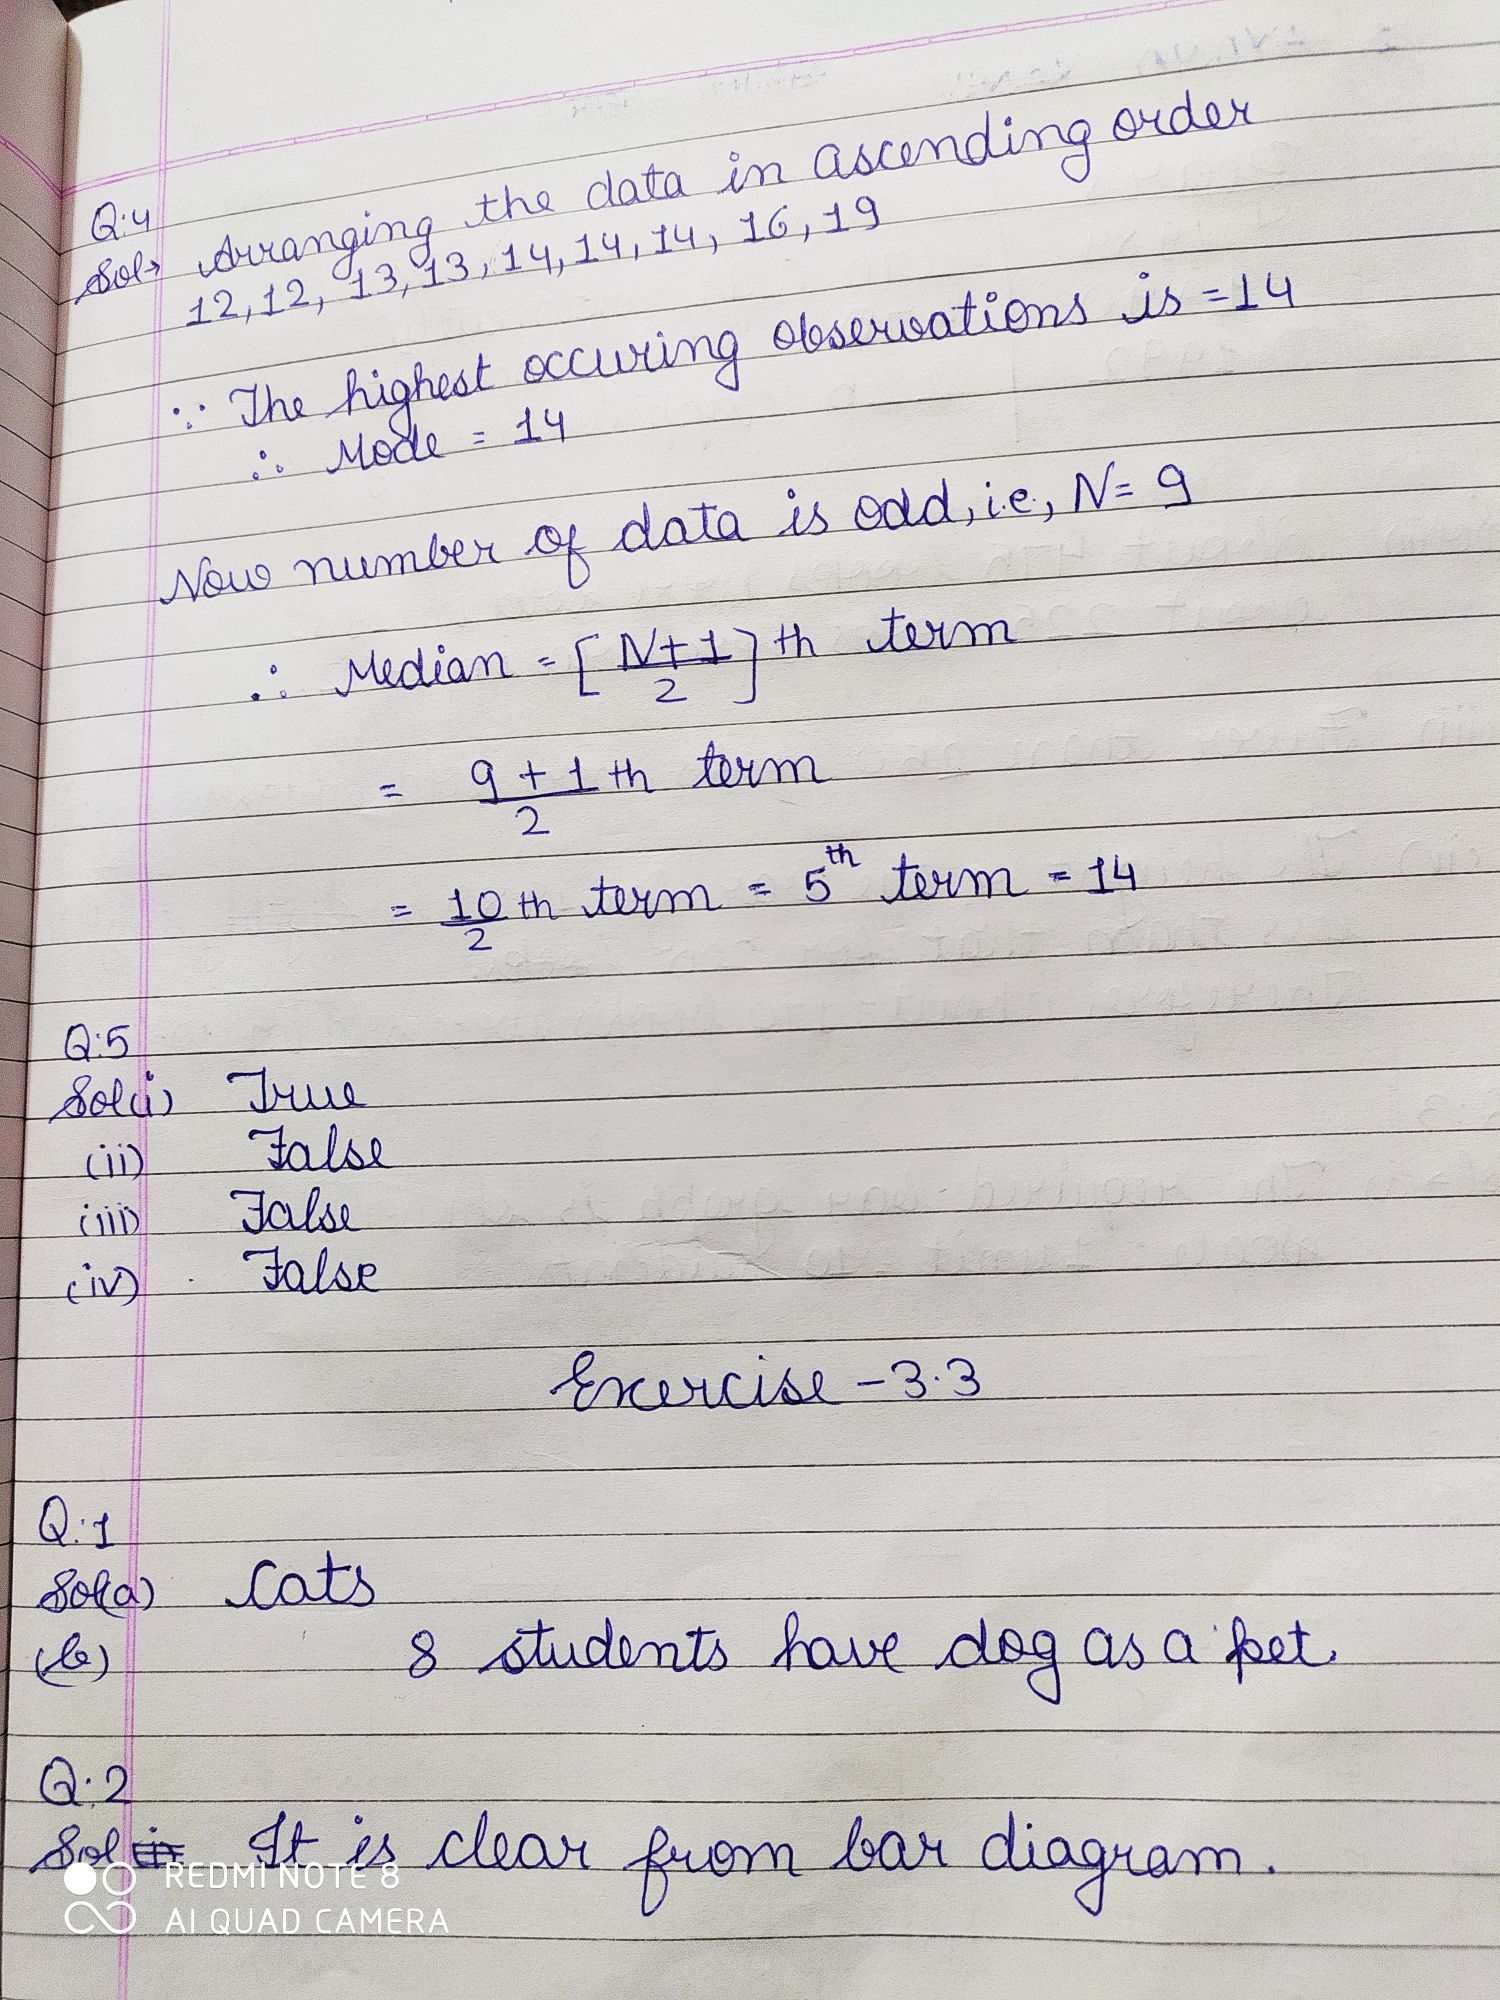 Q:4
Sol→ Arranging the data in ascending order
12, 12, 13, 13, 14, 14, 14, 16, 19
∵ The highest occuring observations is = 14
∴ Mode = 14
Now number of data is odd, i.e., N = 9
∴ Median = [N+1/2] th term
= 9+1/2 th term
= 10/2 th term = 5th term = 14
Q:5
Sol(i) True
(ii) False
(iii) False
(iv) False
Exercise - 3.3
Q:1
Sol(a) Cats
(b) 8 students have dog as a pet.
Q:2
Sol It is clear from bar diagram.
REDMI NOTE 8
AI QUAD CAMERA